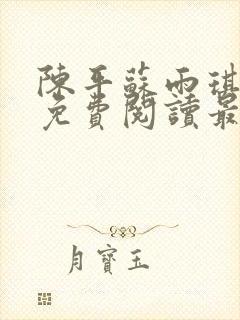 陳平蘇雨琪
免費閱讀最
月寶玉